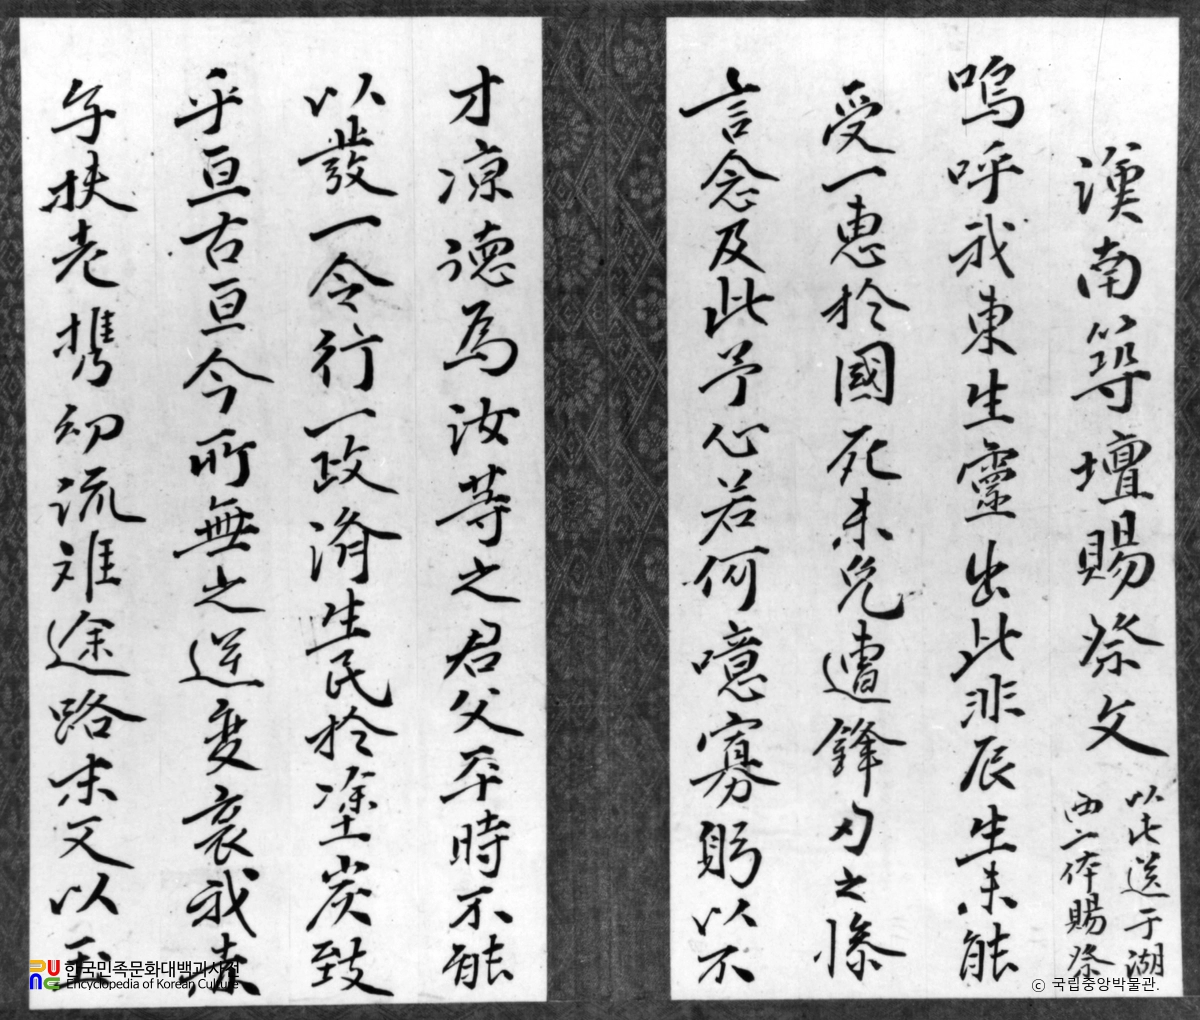 漢南等壇賜祭文
以此送于湖
西一体賜祭
嗚呼我東生靈出此非辰生未能
受一惠於國死未免遭鋒刃之慘
言念及此予心若何噫寡躬以不
才凉德為汝等之君父平時不能
以發一令行一政濟生民於塗炭致
乎亘古亘今所無之逆變哀我赤
子扶老携幼流離途路未又以玉
한국민족문화대백과사전
Encyclopedia of Korean Culture
ⓒ 국립중앙박물관.